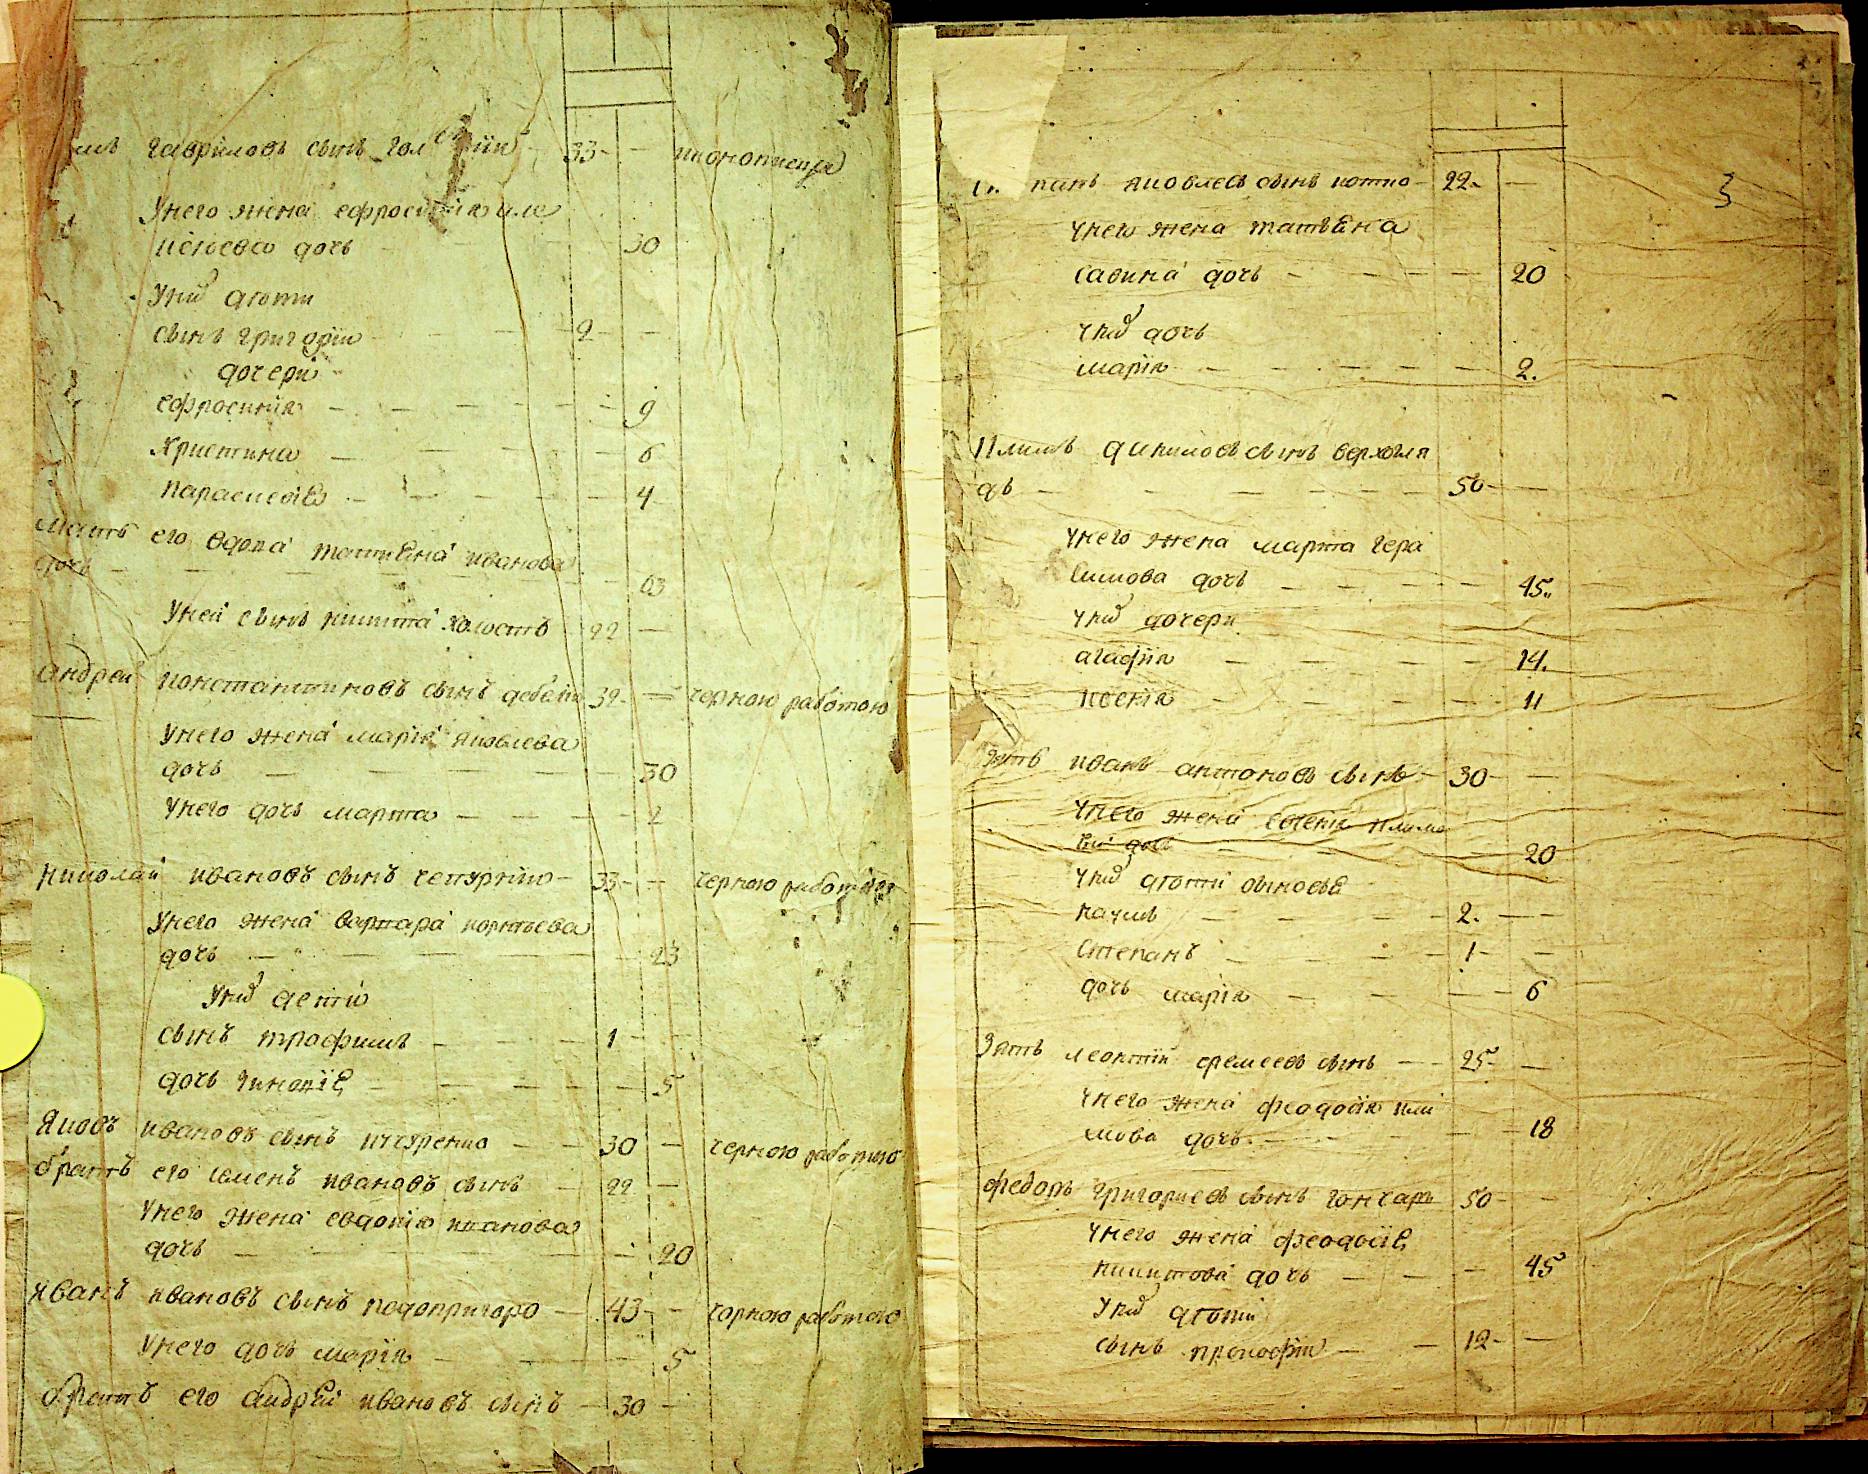 гавриловъ сынъ 33 иконописцъ
Унего жена ефросинія
дочь 30
Унихъ дѣти
сынъ григорій 2
дочери
ефросинія 9
Христина 6
Параскевія 4
Мать его вдова татіяна иванова
дочь 63
Уней сынъ никита холостъ 22
андрей константиновъ сынъ 32 черною работою
Унего жена марія яковлева
дочь 30
Унего дочь марта 2
николай ивановъ сынъ чепурній 33 черною работою
Унего жена варвара
дочь 23
Унихъ дети
сынъ трофимъ 1
дочь 5
Яковъ ивановъ сынъ 30 черною работою
братъ его семенъ ивановъ сынъ 22
Унего жена евдокія иванова
дочь 20
Иванъ ивановъ сынъ подопригоро 43 чорною работою
Унего дочь марія 5
братъ его андрей ивановъ сынъ 30
яковлевъ сынъ 22
3
Унего жена татіяна
савина дочь 20
Унихъ дочь
марія 2.
Климъ даниловъ сынъ верхогля
дъ 50
Унего жена марта гера
симова дочь 45
Унихъ дочери
агафія 14.
ксенія 11
Зять иванъ антоновъ сынъ 30
Унего жена евгенія климо
ва дочь 20
Унихъ дѣти сыновья
наумъ 2.
Степанъ 1
дочь марія 6
Зять леонтій еремеевъ сынъ 25
Унего жена феодосія кли
мова дочь 18
федоръ григориевъ сынъ гончаръ 50
Унего жена феодосія
никитова дочь 45
Унихъ дѣти
сынъ прокофій 12